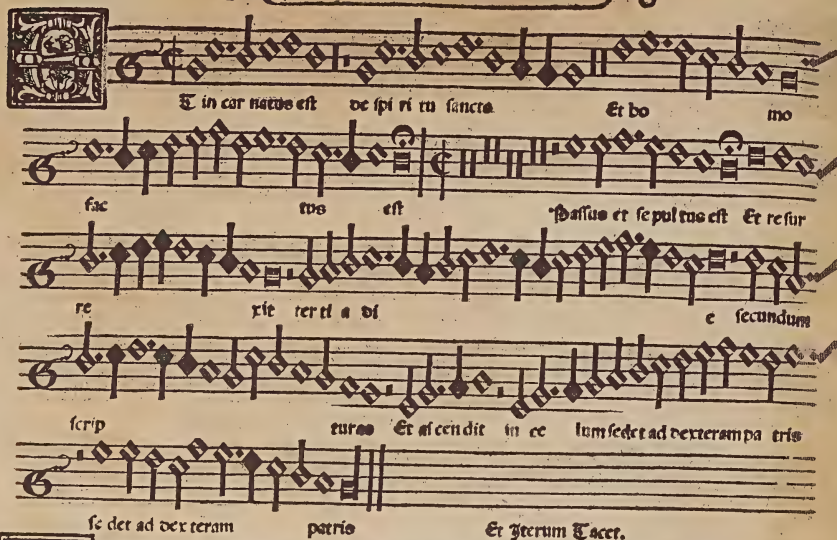 ET in car natus est de spi ri tu sancto Et ho mo
fac tus est Passus et se pul tus est Et resur
re xit ter ti a di e secundum
scrip turas Et ascendit in ce lum sedet ad dexteram pa tris
se det ad dex teram patris Et Iterum Tacet.